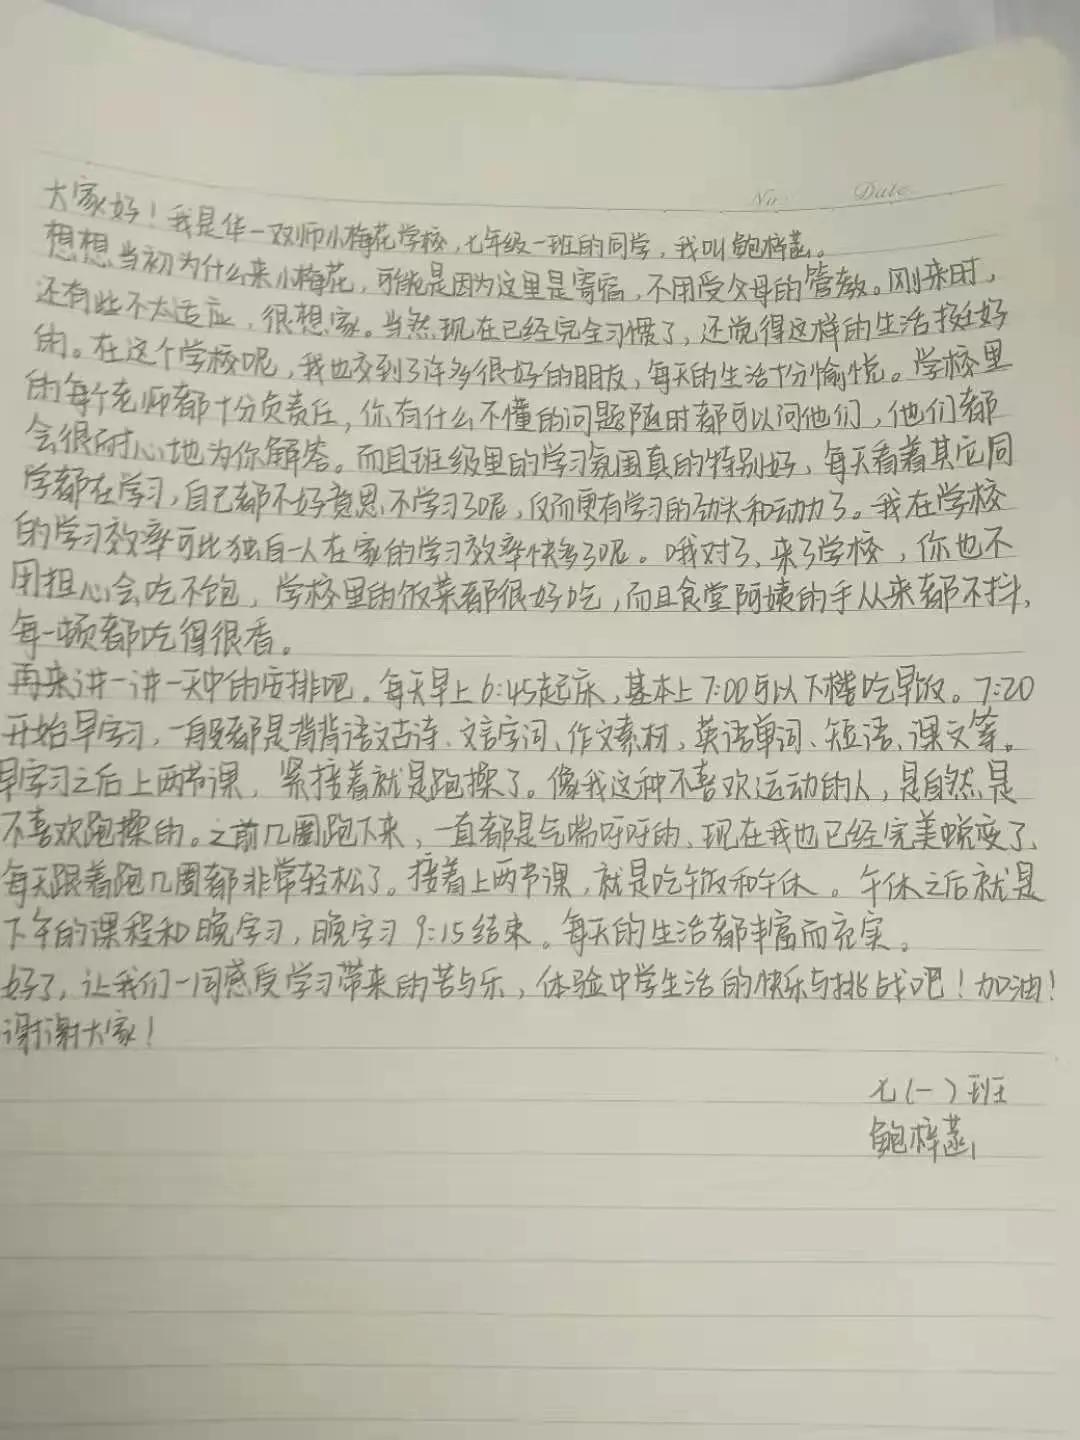 No.  Date
大家好！我是华一双师小梅花学校，七年级一班的同学，我叫鲍梓菡。
想想当初为什么来小梅花，可能是因为这里是寄宿，不用受父母的管教。刚来时，
还有些不太适应，很想家。当然现在已经完全习惯了，还觉得这样的生活挺好
的。在这个学校呢，我也交到了许多很好的朋友，每天的生活十分愉悦。学校里
的每个老师都十分负责任，你有什么不懂的问题随时都可以问他们，他们都
会很耐心地为你解答。而且班级里的学习氛围真的特别好，每天看着其它同
学都在学习，自己都不好意思不学习了呢，反而更有学习的劲头和动力了。我在学校
的学习效率可比独自一人在家的学习效率快多了呢。哦对了、来了学校，你也不
用担心会吃不饱，学校里的饭菜都很好吃，而且食堂阿姨的手从来都不抖，
每一顿都吃得很香。
再来讲一讲一天中的安排吧。每天早上6:45起床，基本上7:00可以下楼吃早饭。7:20
开始早学习，一般都是背背语文古诗、文言字词、作文素材，英语单词、短语、课文等。
早学习之后上两节课，紧接着就是跑操了。像我这种不喜欢运动的人，是自然是
不喜欢跑操的。之前几圈跑下来，一直都是气喘吁吁的、现在我也已经完美蜕变了，
每天跟着跑几圈都非常轻松了。接着上两节课，就是吃午饭和午休。午休之后就是
下午的课程和晚学习，晚学习9:15结束。每天的生活都丰富而充实。
好了，让我们一同感受学习带来的苦与乐，体验中学生活的快乐与挑战吧！加油！
谢谢大家！
七(一)班
鲍梓菡